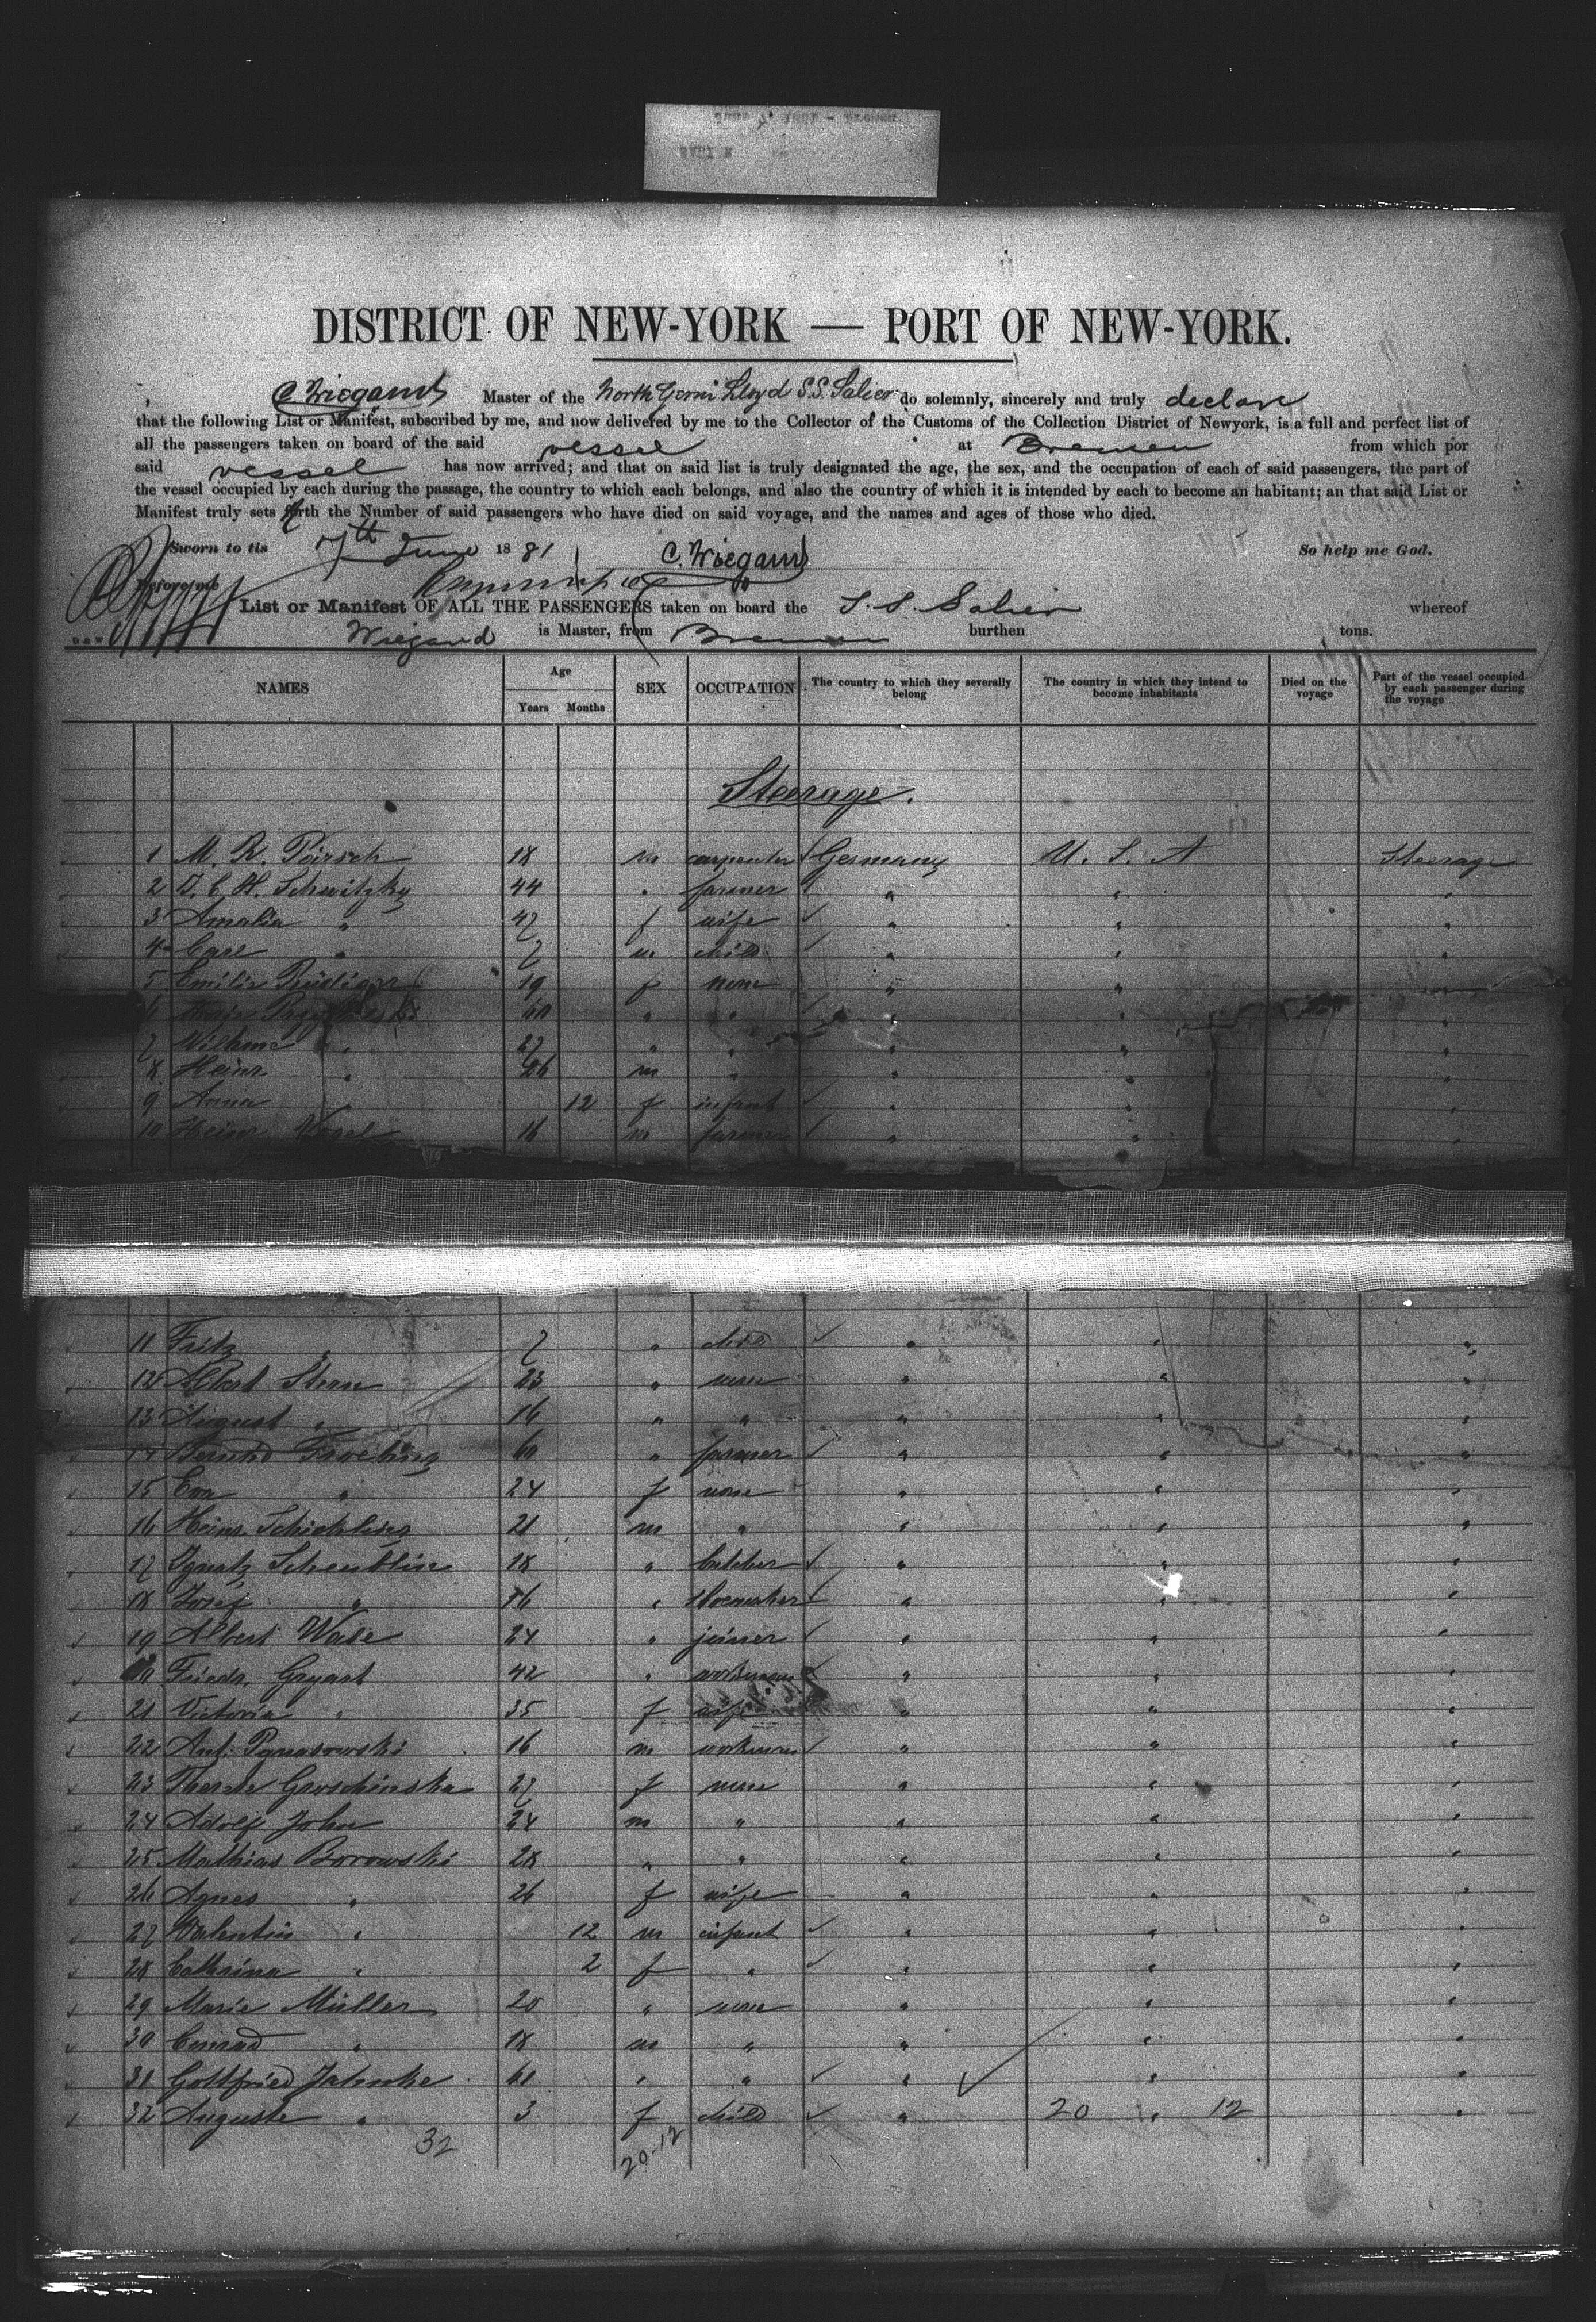 DISTRICT OF NEW-YORK — PORT OF NEW-YORK.
C. Wiegand Master of the North Germ Lloyd S.S. Salier do solemnly, sincerely and truly declare
that the following List or Manifest, subscribed by me, and now delivered by me to the Collector of the Customs of the Collection District of Newyork, is a full and perfect list of
all the passengers taken on board of the said vessel at Bremen from which por
said vessel has now arrived; and that on said list is truly designated the age, the sex, and the occupation of each of said passengers, the part of
the vessel occupied by each during the passage, the country to which each belongs, and also the country of which it is intended by each to become an habitant; an that said List or
Manifest truly sets forth the Number of said passengers who have died on said voyage, and the names and ages of those who died.
Sworn to tis 7th June 1881 C. Wiegand So help me God.
Before me
List or Manifest OF ALL THE PASSENGERS taken on board the S. S. Salier whereof
Wiegand is Master, from Bremen burthen tons.
NAMES Age Years Months SEX OCCUPATION The country to which they severally belong The country in which they intend to become inhabitants Died on the voyage Part of the vessel occupied by each passenger during the voyage
Steerage.
1 M. R. 18 m carpenter Germany U. S. A Steerage
2 Schwitzky 44 " farmer " " "
3 Amalia " 47 f wife " " "
4 Carl " 7 m child " " "
5 Emilie Rüdiger 19 f none " " "
6 60 " " " " "
7 Wilhme " 27 " " " " "
8 Heinr. " 26 m " " " "
9 Anna " 12 f infant " " "
10 Heinr. Vogel 16 m farmer " " "
11 Fritz " 7 " child " " "
12 Albert Stern 23 " none " " "
13 August " 16 " " " " "
14 60 " farmer " " "
15 Eva " 24 f none " " "
16 Heinr. 21 m " " " "
17 Ignatz Scheublin 18 " butcher " " "
18 Josef " 16 " shoemaker " " "
19 Albert Wade 24 " joiner " " "
20 Friedr. 42 " workman " " "
21 Victoria " 35 f wife " " "
22 Ant. 16 m workman " " "
23 Groschinska 27 f none " " "
24 Adolf John 24 m " " " "
25 Mathias Borowski 28 " " " " "
26 Agnes " 26 f wife " " "
27 Valentin " 12 m infant " " "
28 Cathrina " 2 f " " " "
29 Marie Müller 20 " none " " "
30 Conrad " 18 m " " " "
31 Gottfried Jahnke 61 " " " " "
32 Auguste " 3 f child " 20 " 12 "
32 20-12